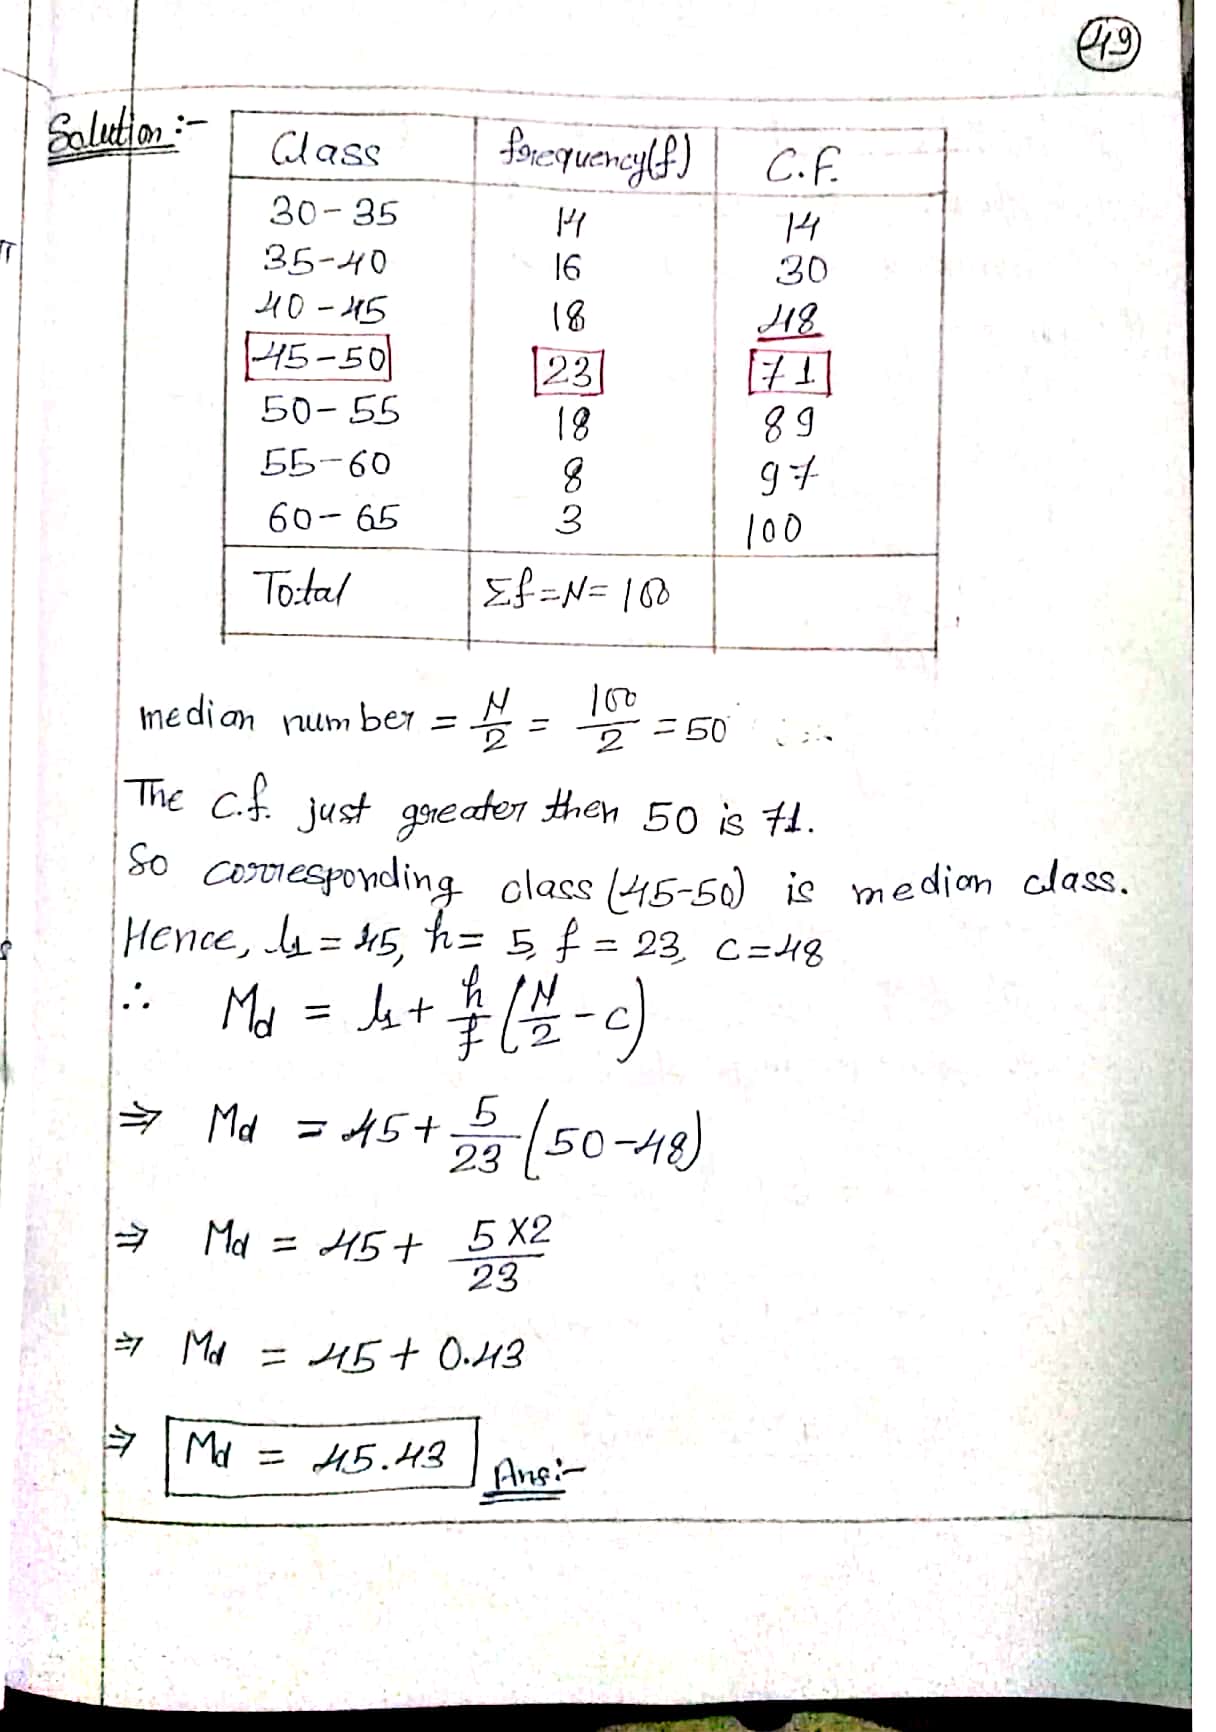 49
Solution :-
Class frequency(f) C.f.
30-35 14 14
35-40 16 30
40-45 18 48
45-50 23 71
50-55 18 89
55-60 8 97
60-65 3 100
Total Σf=N=100
median number = N/2 = 100/2 = 50
The c.f. just greater then 50 is 71.
So corresponding class (45-50) is median class.
Hence, l₁ = 45, h = 5, f = 23, c = 48
∴ Md = l₁ + h/f (N/2 - c)
⇒ Md = 45 + 5/23 (50-48)
⇒ Md = 45 + 5×2/23
⇒ Md = 45 + 0.43
⇒ Md = 45.43 Ans:-